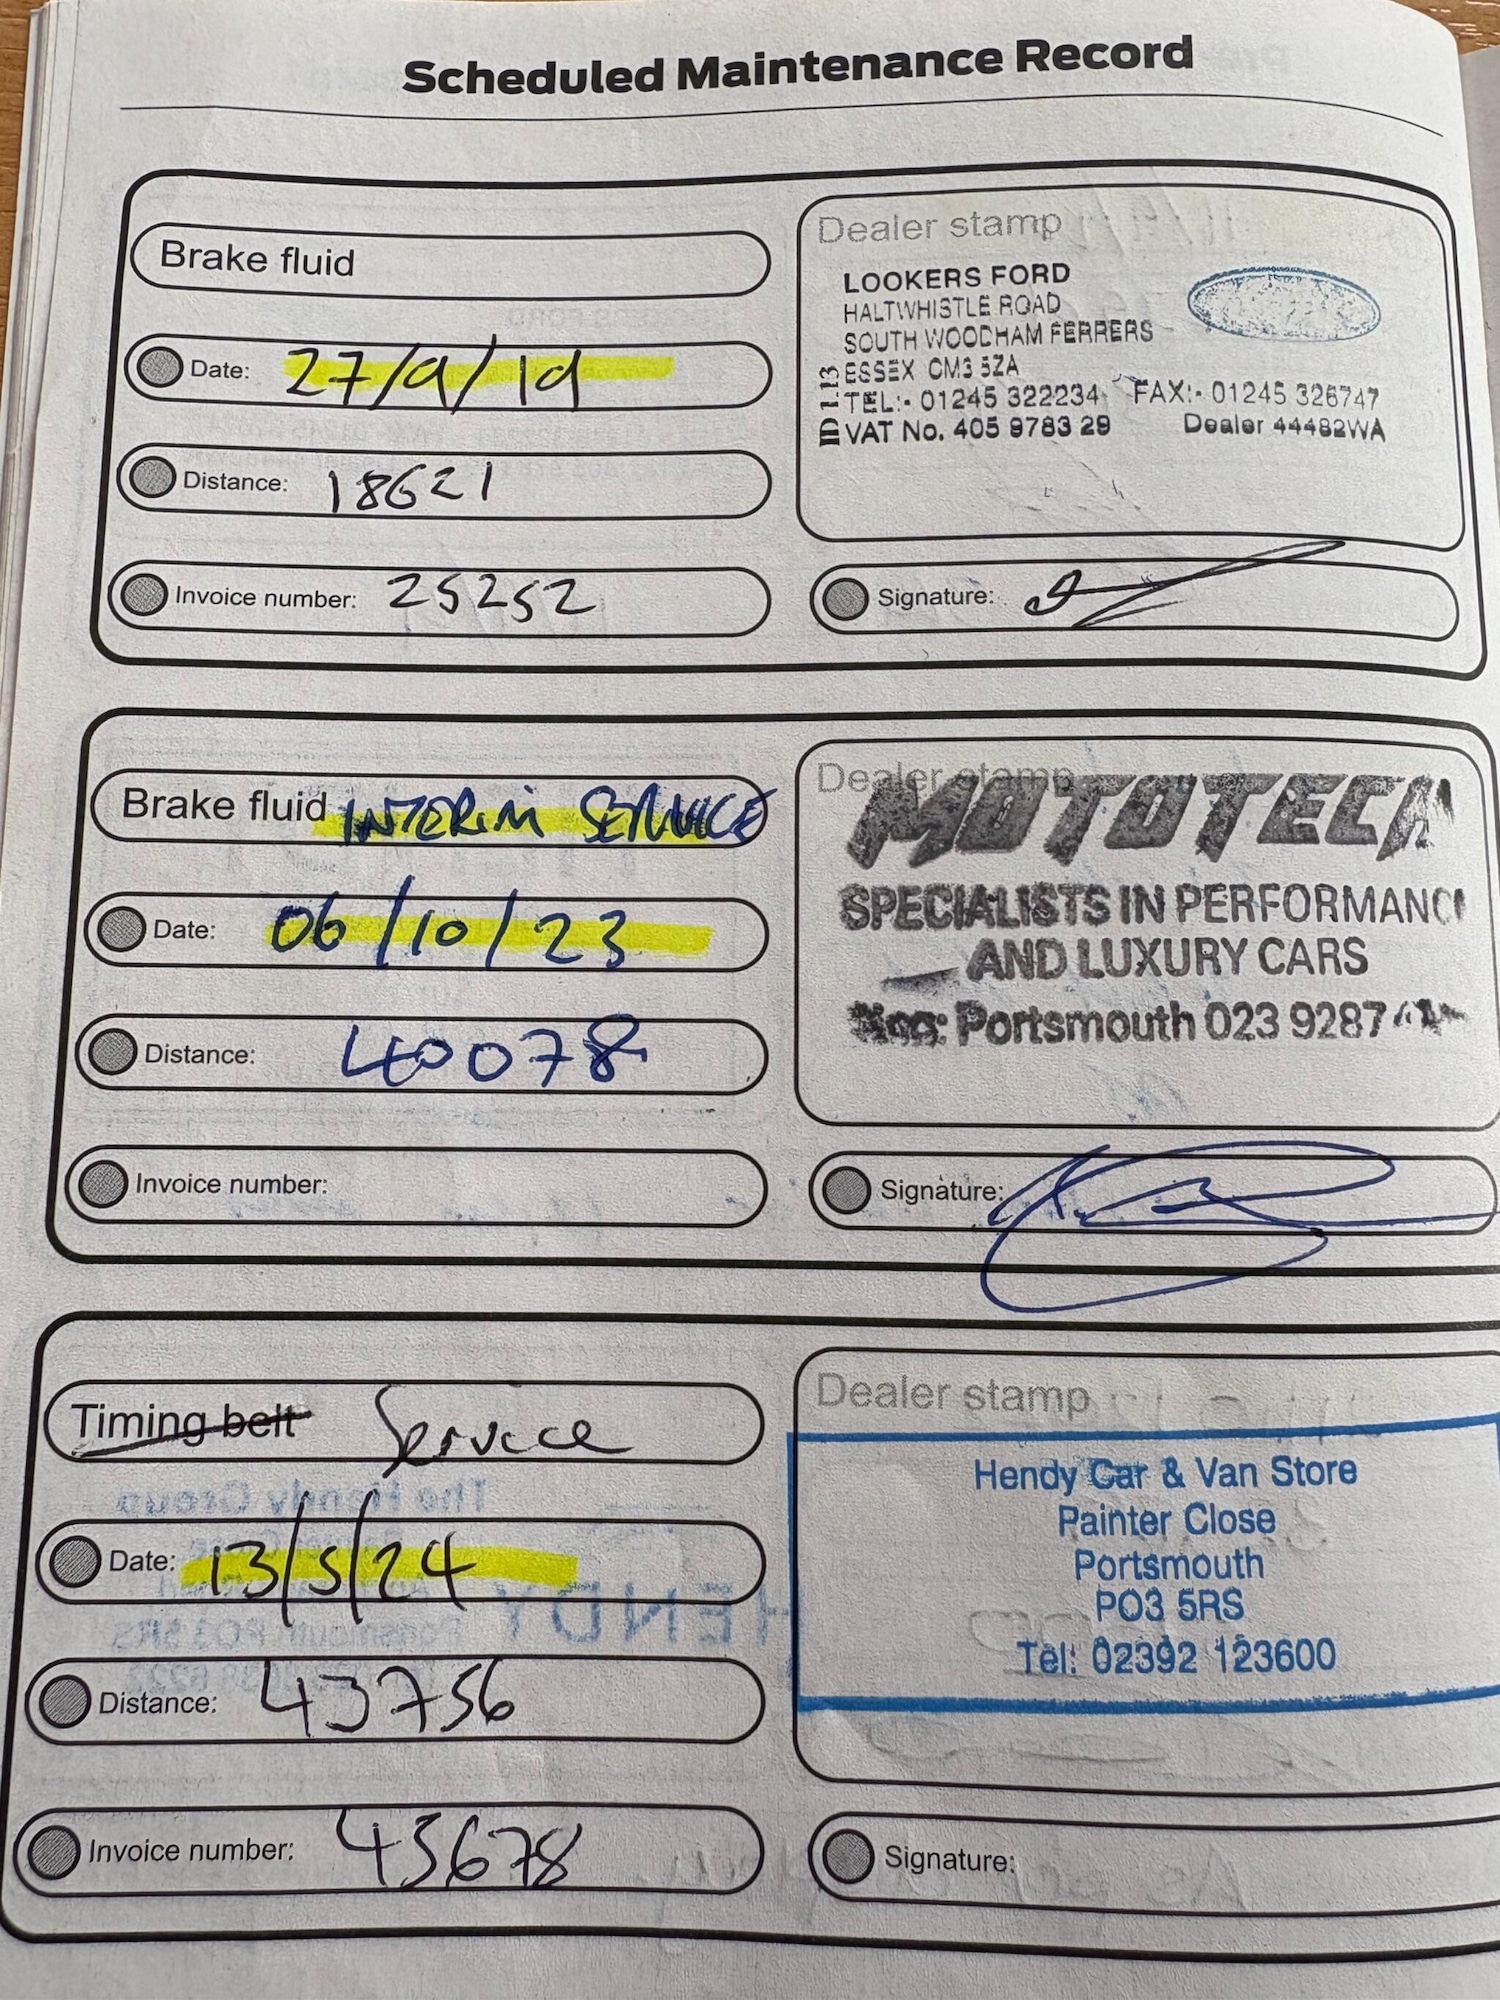 Scheduled Maintenance Record
Brake fluid
Date: 27/9/19
Distance: 18621
Invoice number: 25252
Dealer stamp
LOOKERS FORD
HALTWHISTLE ROAD
SOUTH WOODHAM FERRERS
ESSEX CM3 5ZA
TEL:- 01245 322234 FAX:- 01245 326747
VAT No. 405 9783 29 Dealer 44482WA
Signature:
Brake fluid INTERIM SERVICE
Date: 06/10/23
Distance: 40078
Invoice number:
Dealer stamp
MOTOTECH
SPECIALISTS IN PERFORMANCE
AND LUXURY CARS
Portsmouth 023 9287
Signature:
Timing belt Service
Date: 13/5/24
Distance: 43756
Invoice number: 43678
Dealer stamp
Hendy Car & Van Store
Painter Close
Portsmouth
PO3 5RS
Tel: 02392 123600
Signature: